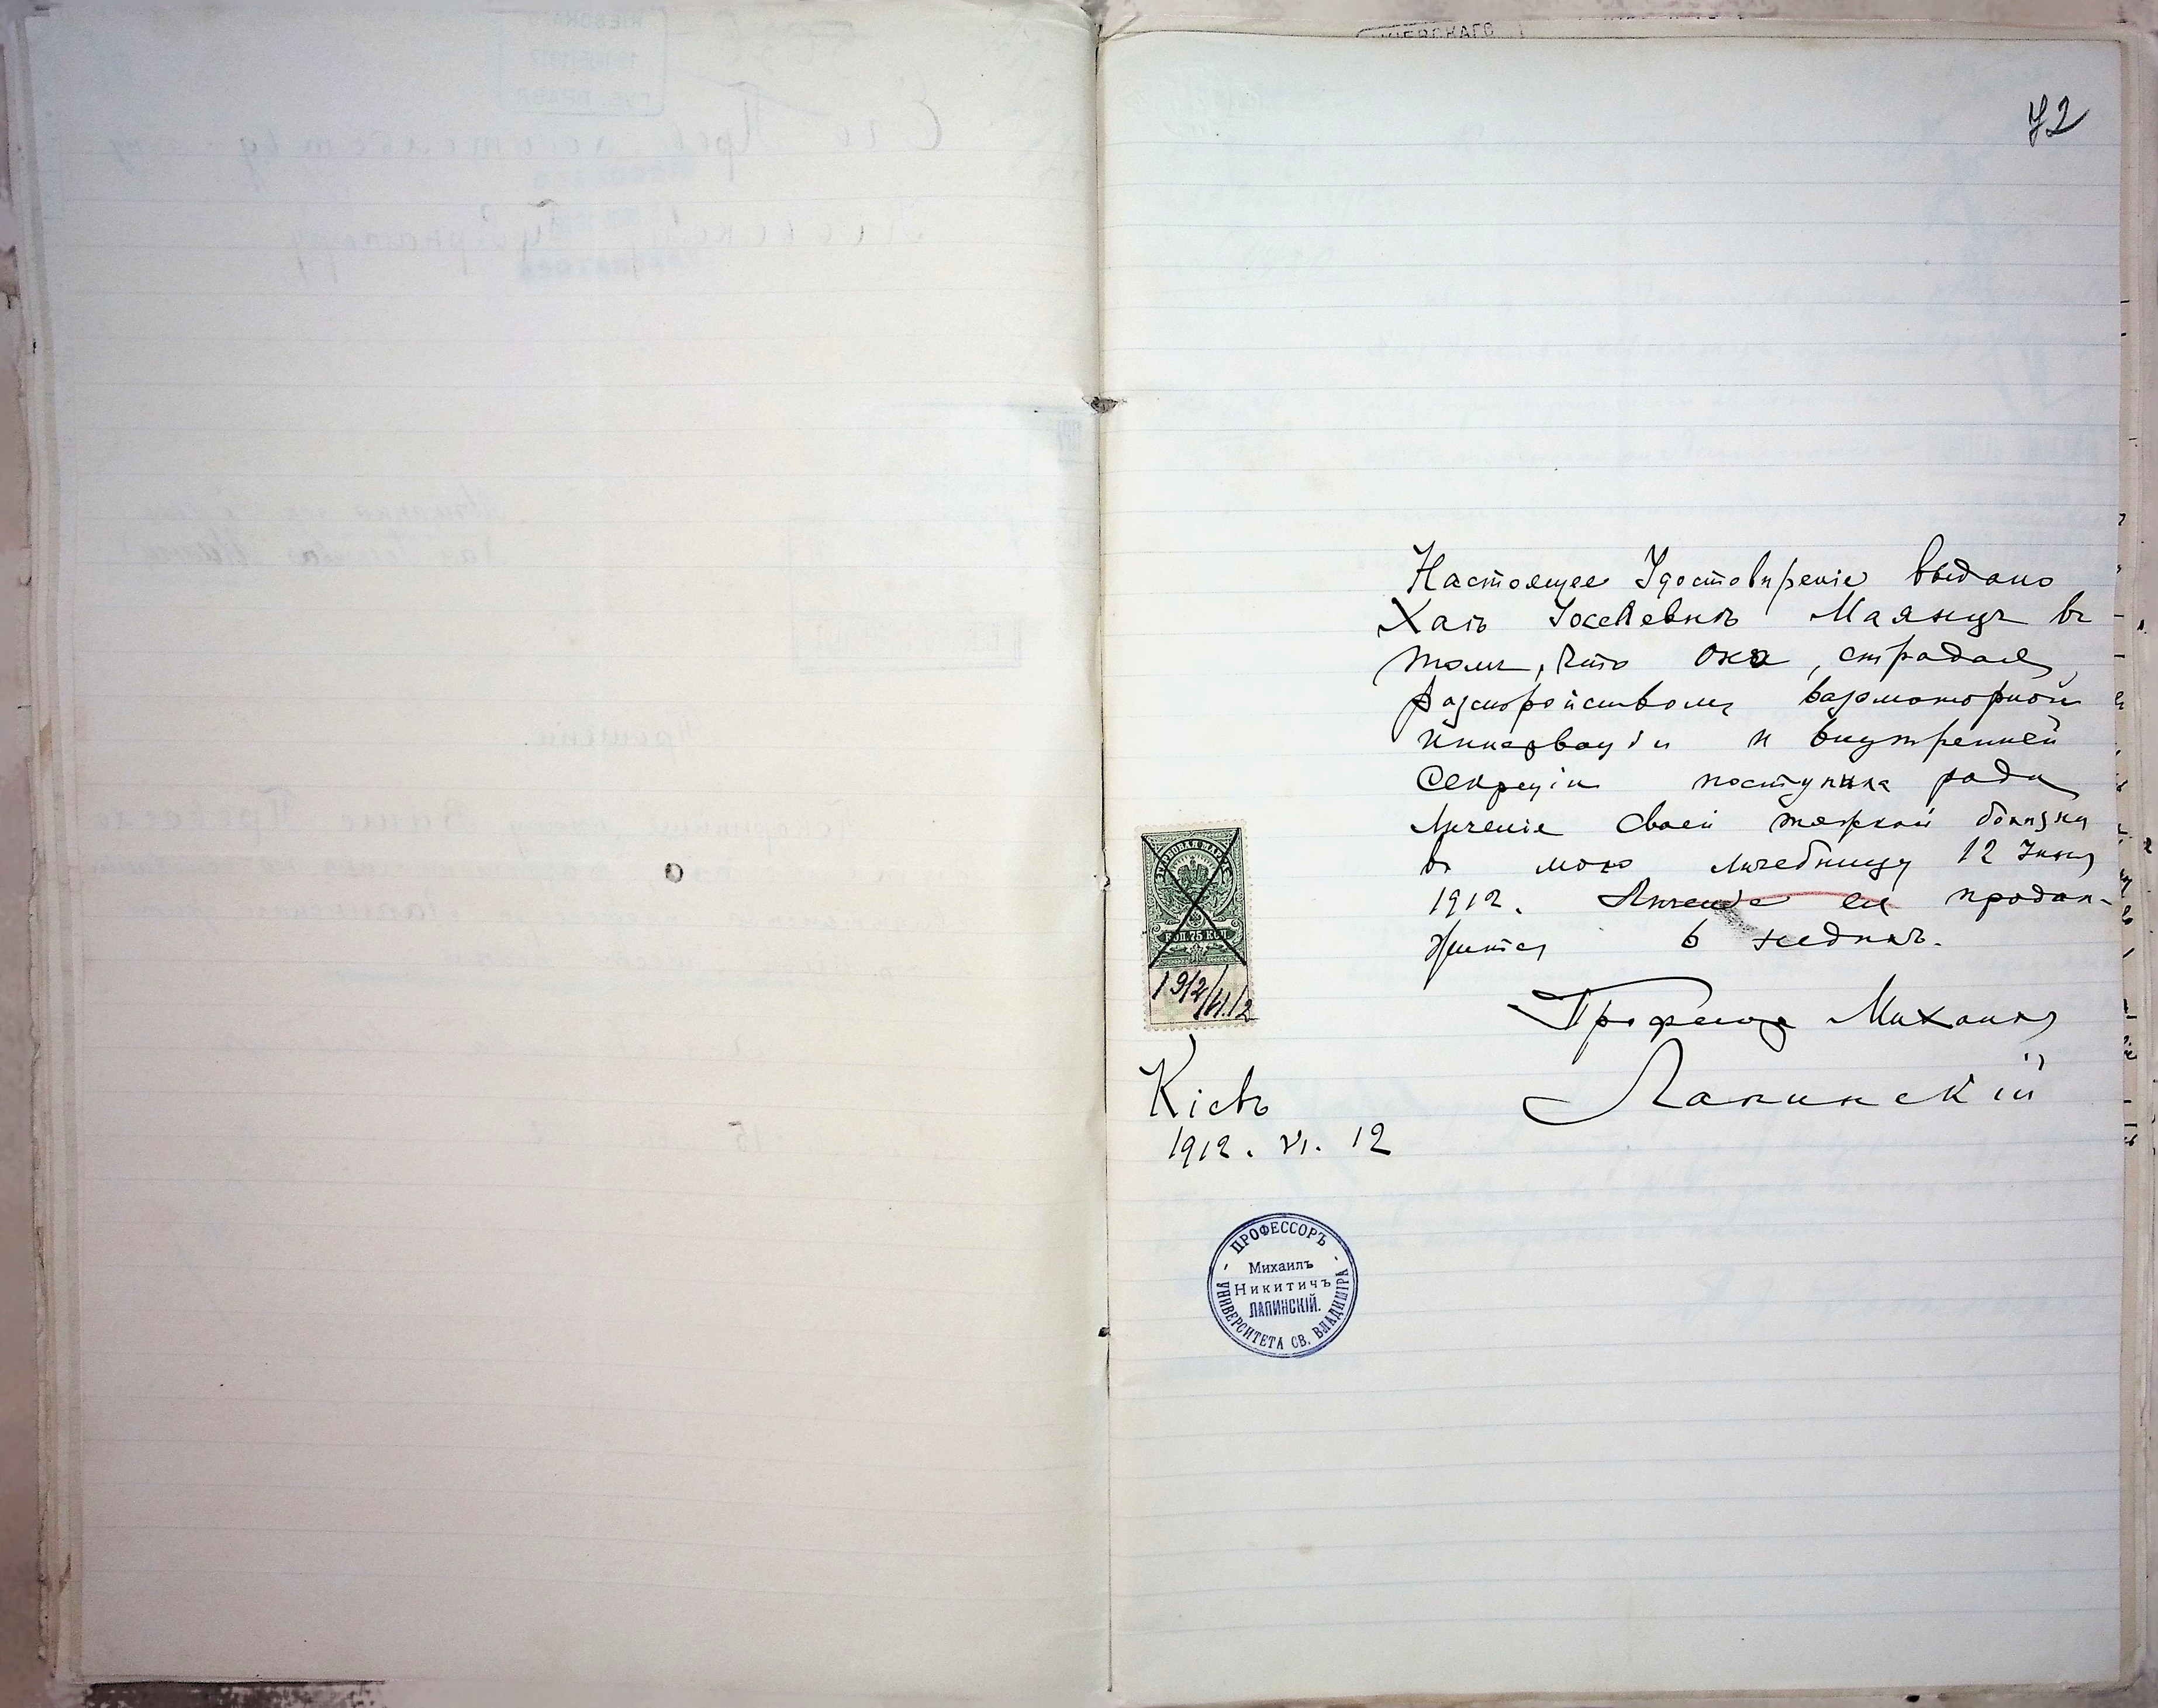 72
Настоящее Удостовѣреніе выдано
Хаѣ Іосевевнѣ Маянцъ въ
томъ, что она, страдая
разстройствомъ вазомоторной
иннерваціи и внутренней
секреціи поступила ради
лѣченіе своей тяжкой болѣзни
въ мою лѣчебницу 12 Іюня
1912. Лѣченіе ея продол-
жится 6 недѣль.
Професоръ Михаилъ
Лапинскій
ГЕРБОВАЯ МАРКА
КОП. 75 КОП.
1912/VI.12
Кіевъ
1912. VI. 12
ПРОФЕССОРЪ
Михаилъ
Никитичъ
ЛАПИНСКІЙ.
УНИВЕРСИТЕТА СВ. ВЛАДИМІРА